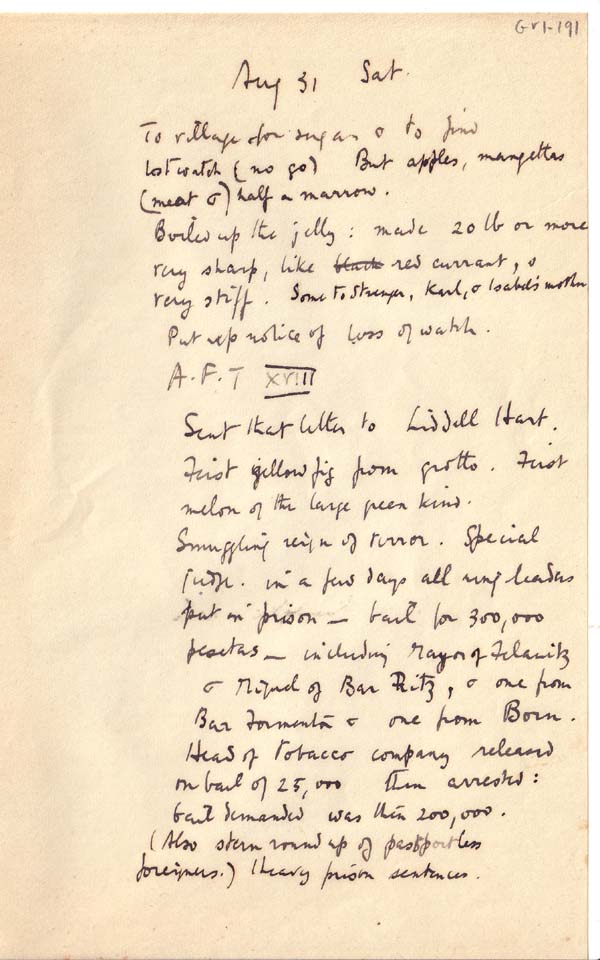 Gr1-191
Aug 31 Sat.
To village for sugar & to find
lost watch (no go) But apples, mangettas
(meat &) half a marrow.
Boiled up the jelly: made 20 lb or more
very sharp, like black red currant, &
very stiff. Some to Strenger, Karl, & Isabel's mother
Put up notice of loss of watch.
A.F.T XVIII
Sent that letter to Liddell Hart.
First yellow fig from grotto. First
melon of the large green kind.
Smuggling reign of terror. Special
judge. in a few days all ring leaders
put in prison — bail for 300,000
pesetas — including Mayor of Felanitz
& Miguel of Bar Ritz, & one from
Bar Formentor & one from Born.
Head of Tobacco company released
on bail of 25,000 then arrested:
bail demanded was then 200,000.
(Also stern round up of passportless
foreigners.) Heavy prison sentences.